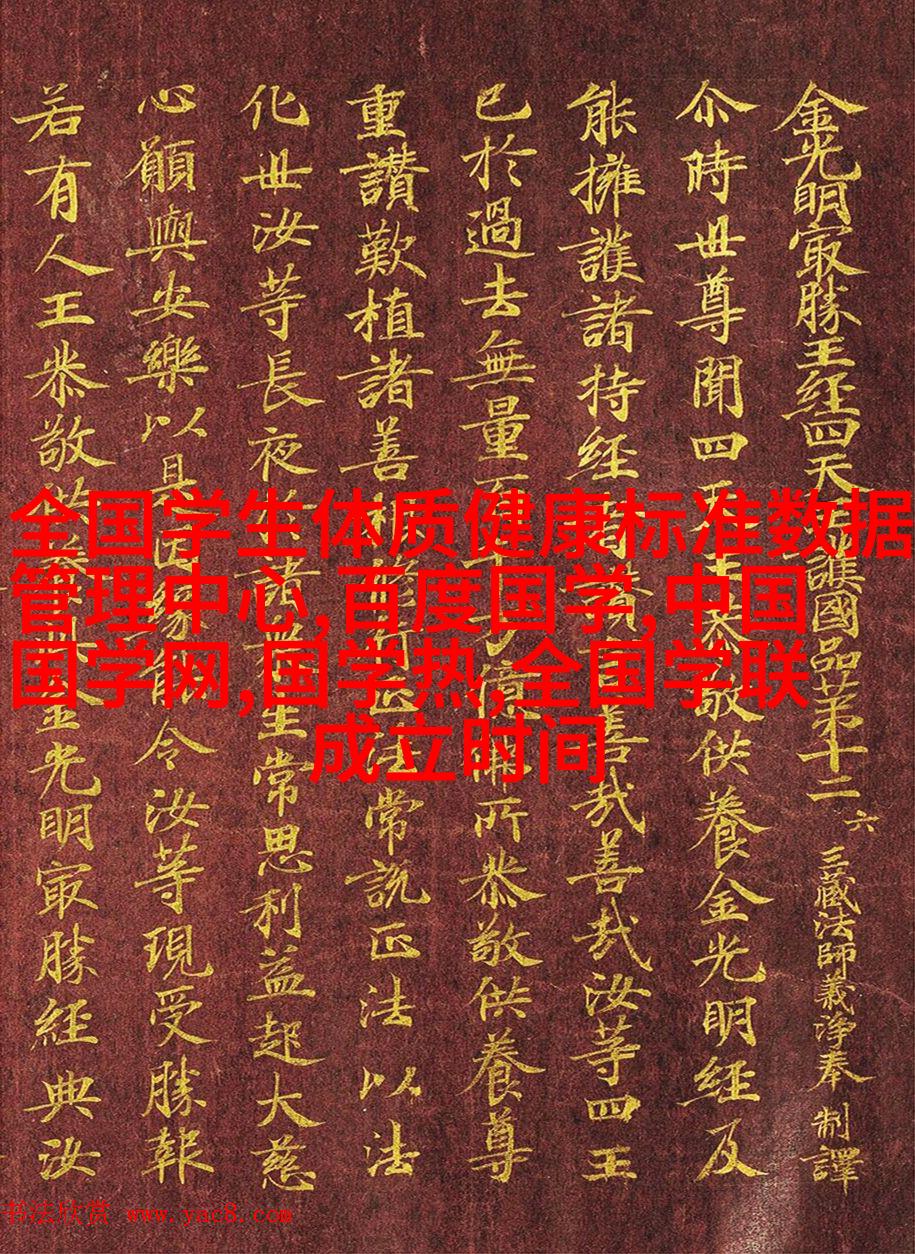 金光明冣勝王經四天護國品苐十二 六 三藏法師義淨奉 制譯
尒時世尊聞四天王恭敬供養金光明經及
能擁護諸持經者讚善哉善哉汝等四王
已於過去無量百億佛所恭敬供養尊
重讚歎植諸善根行正法常說正法以法
化世汝等長夜於諸眾生常思利益起大慈
心願與安樂以是因緣令汝等現受勝報
若有人王恭敬供養金光明冣勝經典汝
全国学生体质健康标准数据
管理中心,百度国学,中国
国学网,国学热,全国学联
成立时间
书法欣赏 www.yac8.com